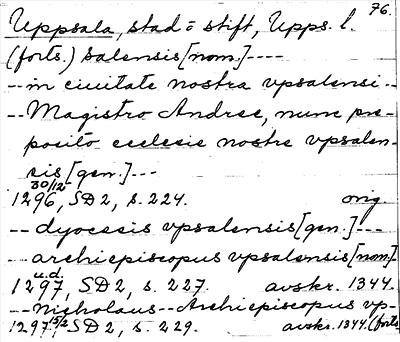 76.
Uppsala, stad o stift, Upps. l.
(forts.) salensis [nom.] ----
-- in ciuitate nostra vpsalensi --
-- Magistro Andree, nunc pre-
posito ecclesie nostre vpsalen-
sis [gen.] ---
30/12
1296, SD2, s. 224. orig.
-- dyocesis vpsalensis [gen.] ---
-- archiepiscopus vpsalensis [nom.]
u.d.
1297, SD2, s. 227. avskr. 1344.
-- Nicholaus -- Archiepiscopus vp-
1297 5/2, SD2, s. 229. avskr. 1344. (forts.